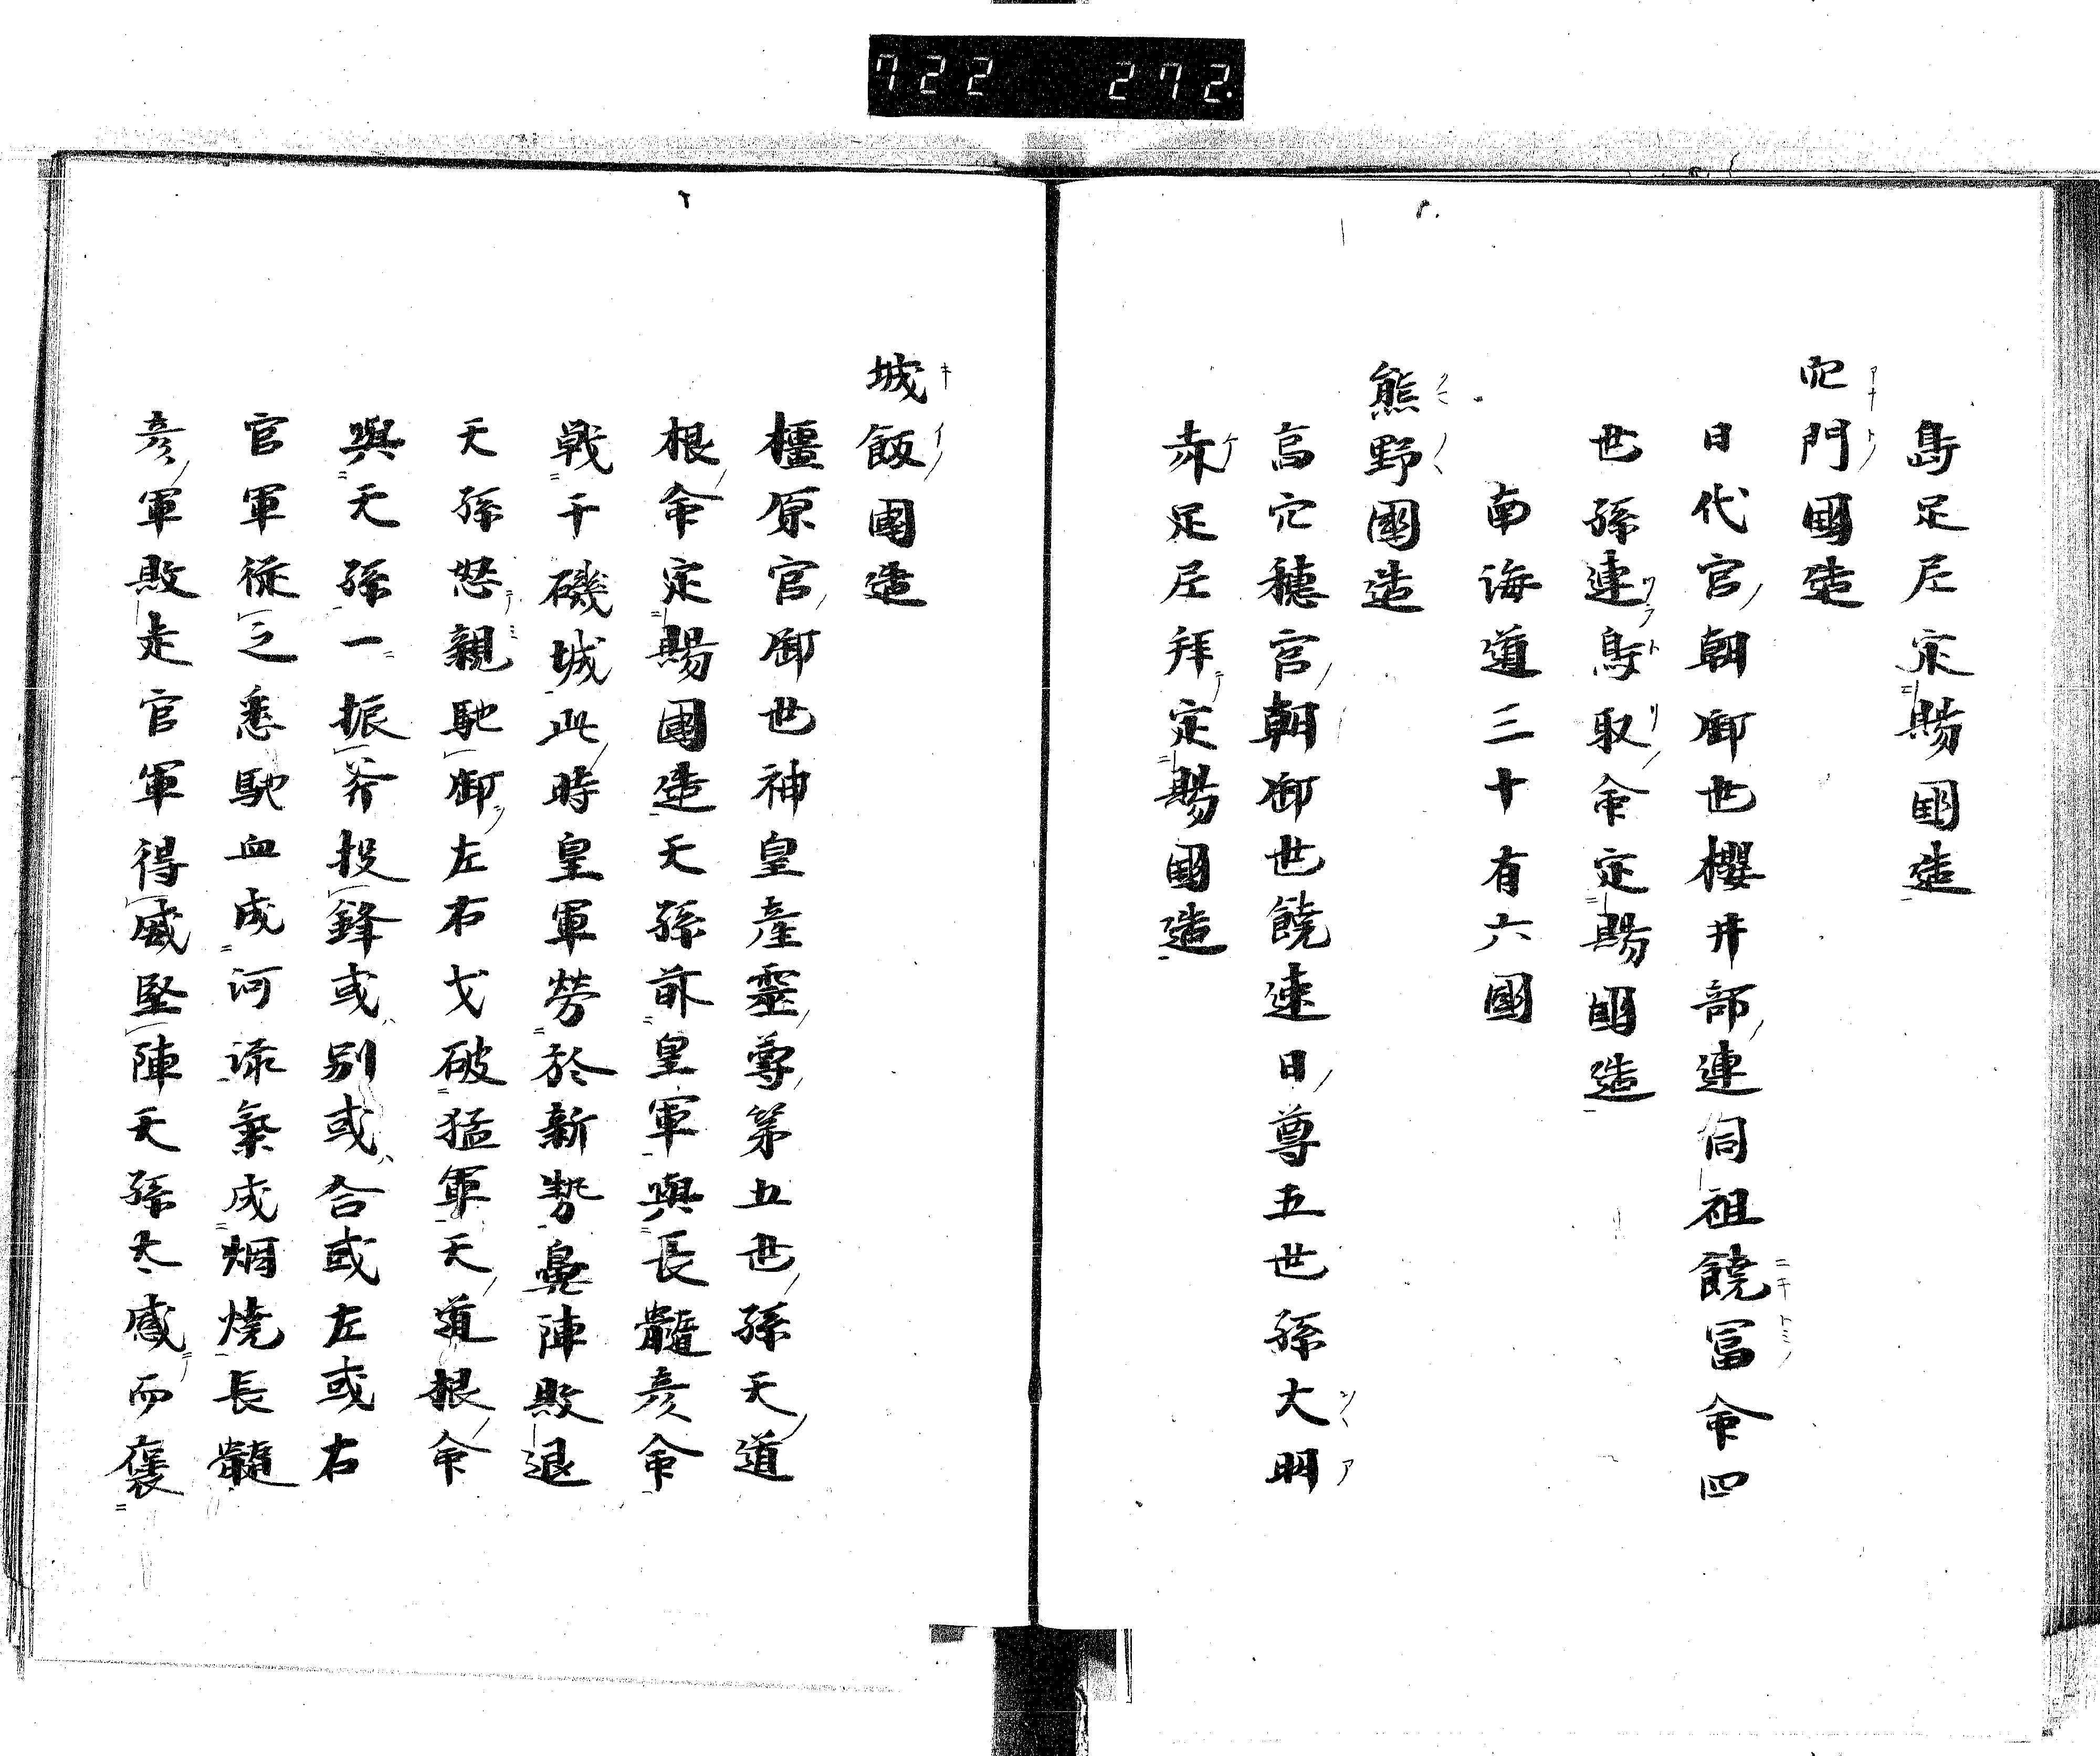 722 272.
島足尼定賜國造
穴門國造
日代宮朝御世櫻井部連同祖饒冨命四
世孫速鳥取命定賜國造
南海道三十有六國
熊野國造
高穴穗宮朝御世饒速日尊五世孫大明
赤足尼拜定賜國造
城飯國造
橿原宮御世神皇產靈尊第五世孫天道
根命定賜國造天孫前皇軍與長髓彦命
戰于磯城此時皇軍勞於新勢鼻陣敗退
天孫怒親馳御左右戈破猛軍天道根命
與天孫一振斧投鋒或別或合或左或右
官軍從之悉馳血成河添氣成烟燒長髓
彦軍敗走官軍得威堅陣天孫太感而褒